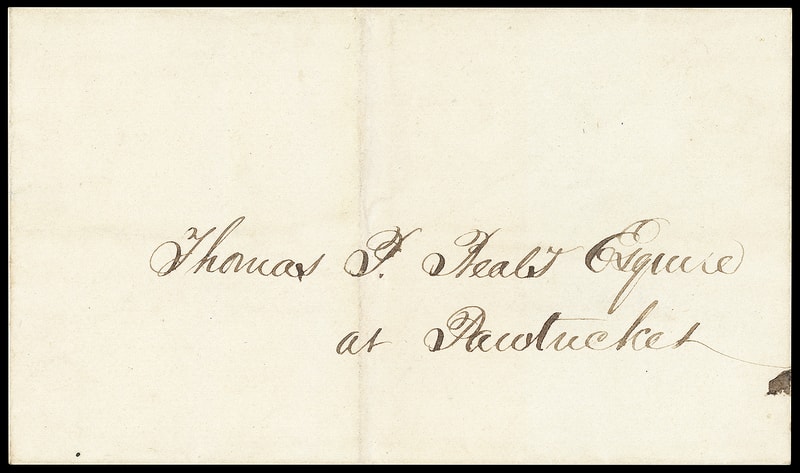 Thomas P. Beals Esquire
at Pawtucket